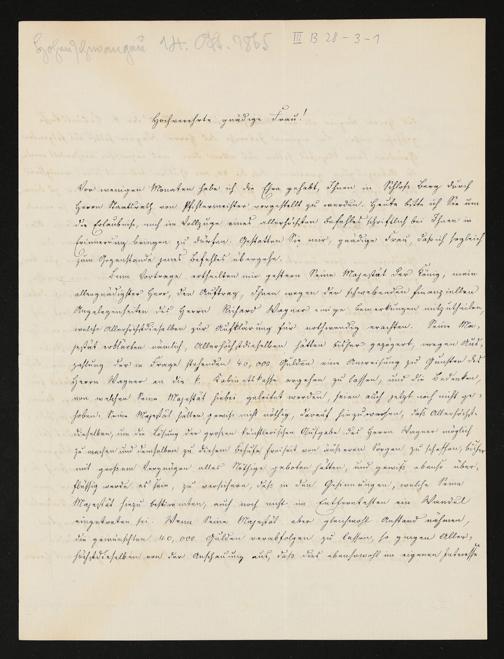 Hohenschwangau 14. Okt. 1865 III B 28-3-1
Hochverehrte gnädige Frau!
Vor wenigen Monaten habe ich die Ehre gehabt, Ihnen in Schloß Berg durch
Herrn Staatsrath von Pfistermeister vorgestellt zu werden. Heute bitte ich Sie um
die Erlaubniß, mich im Vollzuge eines allerhöchsten Befehles schriftlich bei Ihnen in
Erinnerung bringen zu dürfen. Gestatten Sie mir, gnädige Frau, daß ich sogleich
zum Gegenstande jenes Befehles übergehe.
Beim Vortrage ertheilten mir gestern Seine Majestät der König, mein
allergnädigster Herr, den Auftrag, Ihnen wegen der schwebenden finanziellen
Angelegenheiten des Herrn Richard Wagner einige Bemerkungen mitzutheilen,
welche Allerhöchstdieselben zur Aufklärung für nothwendig erachten. Seine Ma-
jestät erklärten nämlich, Allerhöchstdieselben hätten bisher gezögert, wegen Aus-
zahlung der in Frage stehenden 40,000 Gulden eine Anweisung zu Gunsten des
Herrn Wagner an die k. Kabinetskasse ergehen zu lassen, und die Bedenken,
von welchen Seine Majestät hiebei geleitet worden, seien auch jetzt noch nicht ge-
hoben. Seine Majestät hätten gewiß nicht nöthig, darauf hinzuweisen, daß Allerhöchst-
dieselben, um die Lösung der großen künstlerischen Aufgabe des Herrn Wagner möglich
zu machen und demselben zu diesem Behufe Freiheit von äußeren Sorgen zu schaffen, bisher
mit großem Vergnügen alles Nöthige geboten hätten, und gewiß ebenso über-
flüssig werde es sein, zu versichern, daß in den Gesinnungen, welche Seine
Majestät hiezu bestimmten, auch noch nicht im Entferntesten ein Wandel
eingetreten sei. Wenn Seine Majestät aber gleichwohl Anstand nähmen,
die gewünschten 40,000 Gulden verabfolgen zu lassen, so gingen Aller-
höchstdieselben von der Anschauung aus, daß dies ebensowohl im eigenen Interesse